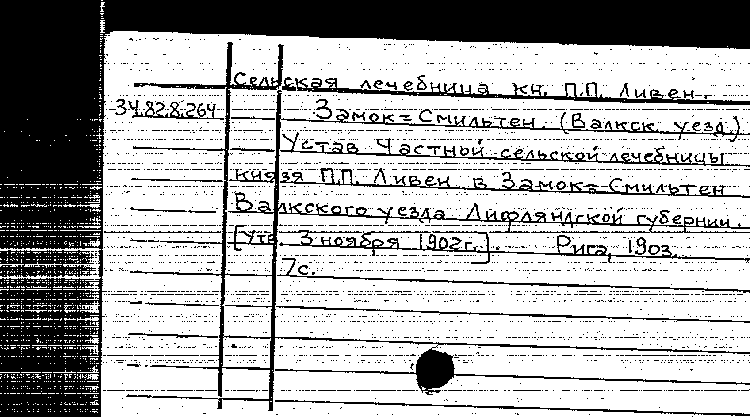 Сельская лечебница кн. П.П. Ливен.
34.82.8.264 Замок=Смильтен. (Валкск. уезд.)
Устав Частной сельской лечебницы
князя П.П. Ливен в Замок=Смильтен
Валкского уезда Лифляндской губернии.
[Утв. 3 ноября 1902г.]. Рига, 1903.
7с.